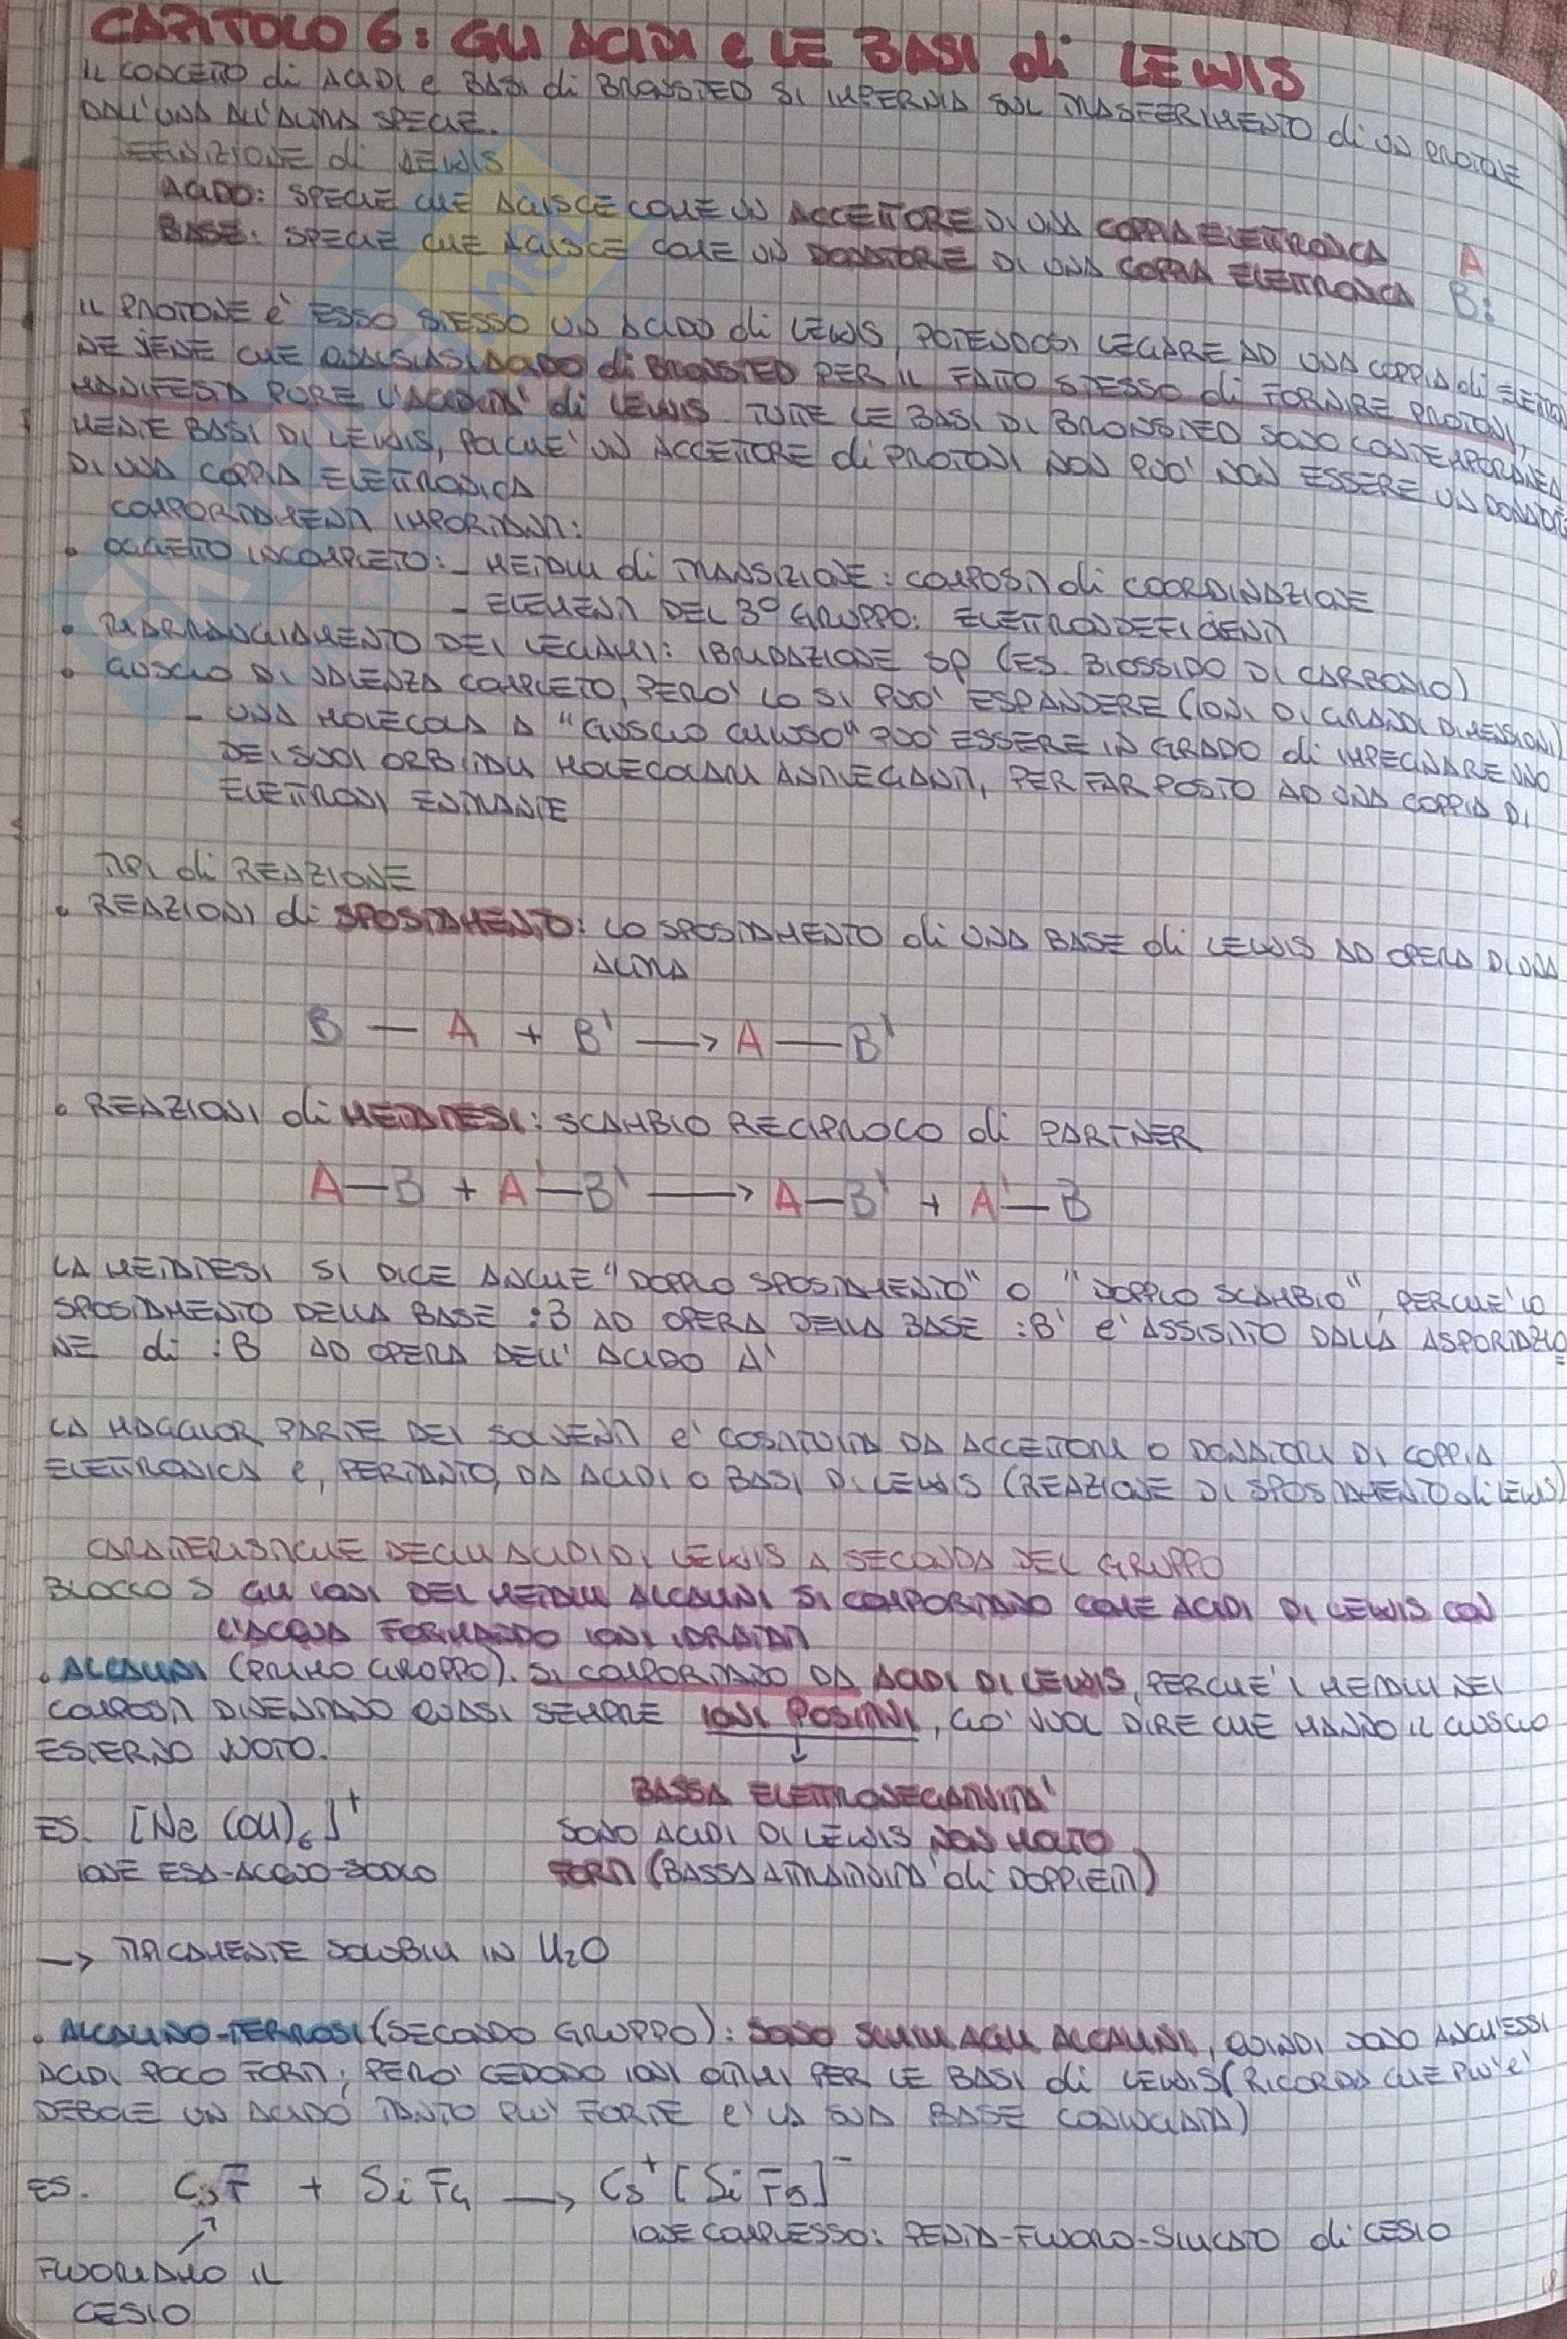 CAPITOLO 6: GLI ACIDI e LE BASI di LEWIS
IL CONCETTO di ACIDI e BASI di BRONSTED SI IMPERNIA SUL TRASFERIMENTO di UN PROTONE
DALL'UNA ALL'ALTRA SPECIE.
DEFINIZIONE di LEWIS
ACIDO: SPECIE CHE AGISCE COME UN ACCETTORE DI UNA COPPIA ELETTRONICA A
BASE: SPECIE CHE AGISCE COME UN DONATORE DI UNA COPPIA ELETTRONICA B:
IL PROTONE e' ESSO STESSO UN ACIDO di LEWIS, POTENDOSI LEGARE AD UNA COPPIA di ELETTRO
NE VIENE CHE QUALSIASI ACIDO di BRONSTED PER IL FATTO STESSO di FORNIRE PROTONI,
MANIFESTA PURE L'ACIDITA' di LEWIS. TUTTE LE BASI DI BRONSTED SONO CONTEMPORANEA
MENTE BASI DI LEWIS, POICHE' UN ACCETTORE di PROTONI NON PUO' NON ESSERE UN DONATORE
DI UNA COPPIA ELETTRONICA
COMPORTAMENTI IMPORTANTI:
• OGGETTO INCOMPLETO: - METALLI di TRANSIZIONE: COMPOSTI di COORDINAZIONE
- ELEMENTI DEL 3° GRUPPO: ELETTRONDEFICIENTI
• RIARRANGIAMENTO DEI LEGAMI: IBRIDAZIONE sp (ES. BIOSSIDO DI CARBONIO)
• GUSCIO DI VALENZA COMPLETO, PERO' LO SI PUO' ESPANDERE (IONI DI GRANDI DIMENSIONI)
- UNA MOLECOLA A "GUSCIO CHIUSO" PUO' ESSERE IN GRADO di IMPEGNARE UNO
DEI SUOI ORBITALI MOLECOLARI ANTILEGANTI, PER FAR POSTO AD UNA COPPIA DI
ELETTRONI ENTRANTE
TIPI di REAZIONE
• REAZIONI di SPOSTAMENTO: LO SPOSTAMENTO di UNA BASE di LEWIS AD OPERA DI UNA
ALTRA
B — A + B' → A — B'
• REAZIONI di METATESI: SCAMBIO RECIPROCO di PARTNER
A—B + A'—B' → A—B' + A'—B
LA METATESI SI DICE ANCHE "DOPPIO SPOSTAMENTO" O "DOPPIO SCAMBIO", PERCHE' LO
SPOSTAMENTO DELLA BASE :B AD OPERA DELLA BASE :B' e' ASSISTITO DALLA ASPORTAZIO
NE di :B AD OPERA DELL' ACIDO A'
LA MAGGIOR PARTE DEI SOLVENTI e' COSTITUITA DA ACCETTORI O DONATORI DI COPPIA
ELETTRONICA e, PERTANTO, DA ACIDI O BASI DI LEWIS (REAZIONE DI SPOSTAMENTO di LEWIS)
CARATTERISTICHE DEGLI ACIDI DI LEWIS A SECONDA DEL GRUPPO
BLOCCO S GLI IONI DEI METALLI ALCALINI SI COMPORTANO COME ACIDI DI LEWIS CON
L'ACQUA FORMANDO IONI IDRATATI
• ALCALINI (PRIMO GRUPPO). SI COMPORTANO DA ACIDI DI LEWIS, PERCHE' I METALLI NEI
COMPOSTI DIVENTANO QUASI SEMPRE IONI POSITIVI, CIO' VUOL DIRE CHE HANNO IL GUSCIO
ESTERNO VUOTO.
↓
BASSA ELETTRONEGATIVITA'
ES. [Na (OH)₆]⁺ SONO ACIDI DI LEWIS NON MOLTO
IONE ESA-ACQUO-SODIO FORTI (BASSA ATTRATTIVITA' di DOPPIETTI)
→ TIPICAMENTE SOLUBILI IN H₂O
• ALCALINO-TERROSI (SECONDO GRUPPO): SONO SIMILI AGLI ALCALINI, QUINDI SONO ANCH'ESSI
ACIDI POCO FORTI; PERO' CEDONO IONI OTTIMI PER LE BASI di LEWIS (RICORDA CHE PIU' e'
DEBOLE UN ACIDO TANTO PIU' FORTE e' LA SUA BASE CONIUGATA)
ES. CsF + SiF₄ → Cs⁺ [SiF₅]⁻
IONE COMPLESSO: PENTA-FLUORO-SILICATO di CESIO
FLUORIAMO IL
CESIO